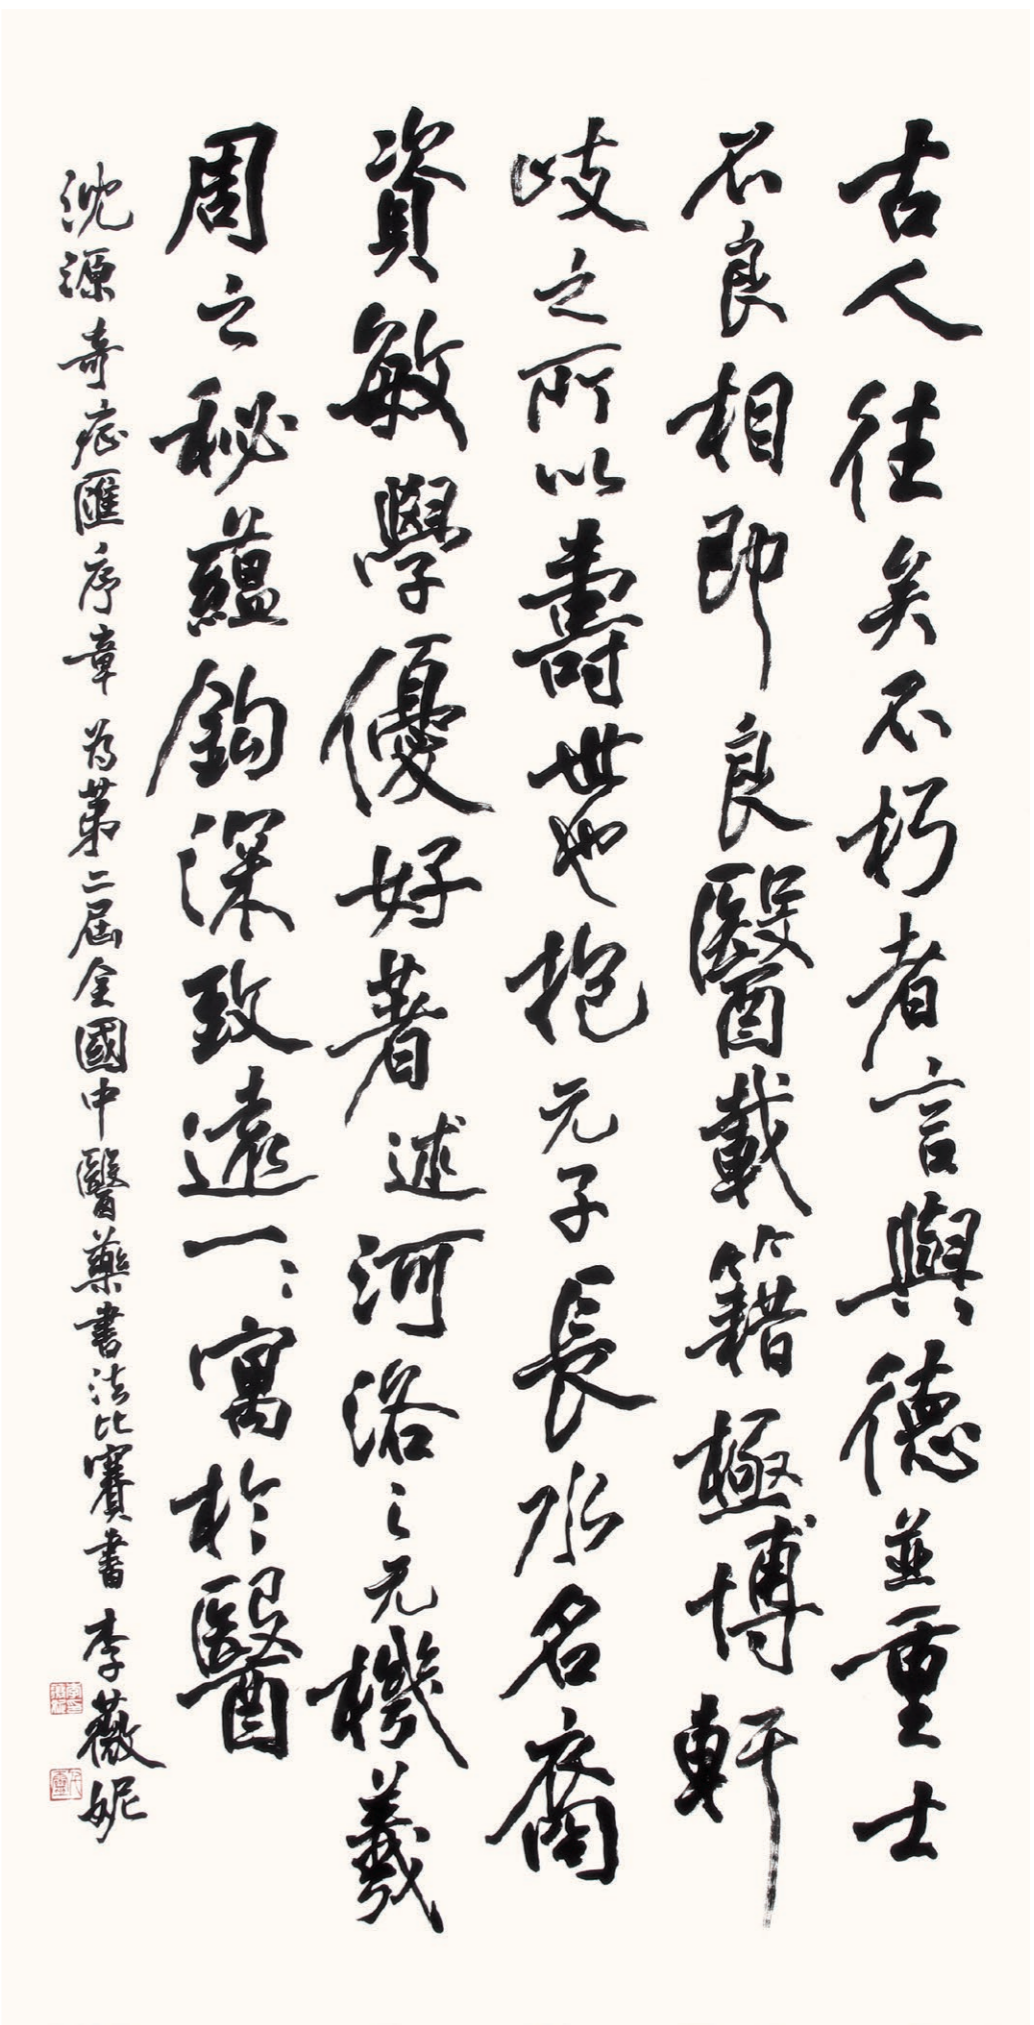 古人往矣不朽者言與德並重士
不良相即良醫載籍極博軒
岐之所以壽世也抱元子長水名裔
資敏學優好著述河洛之元機羲
周之秘蘊鈎深致遠一〻寓於醫
沈源奇症匯序章 為第二屆全國中醫藥書法比賽書 李薇妮